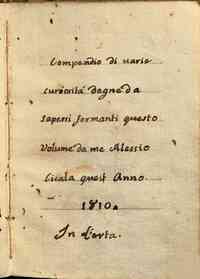 Compendio di varie
curiosità degne da
sapersi formanti questo
Volume da me Alessio
Cicala quest' Anno
1810.
In